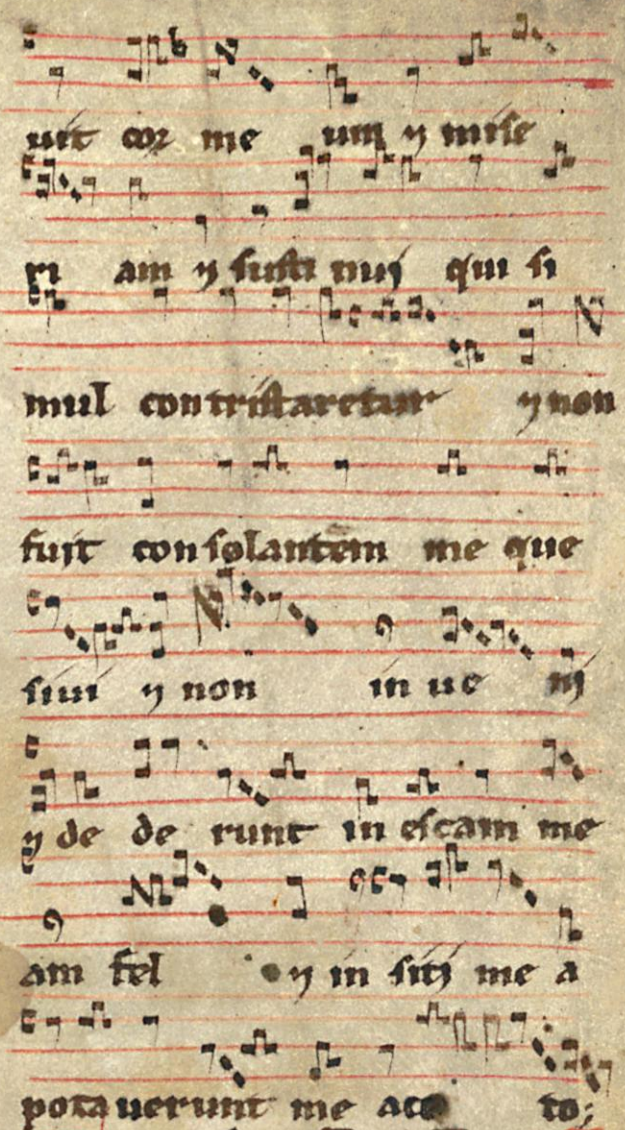 uit cor me um ⁊ mise
ri am ⁊ susti nuj qui si
mul contristaretur ⁊ non
fuit consolantem me que
siui ⁊ non in ue nj
⁊ de de runt in escam me
am fel ⁊ in sitj me a
potauerunt me aceto;